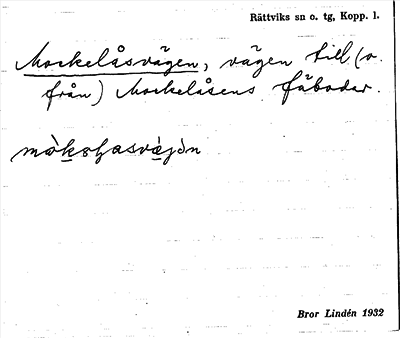 Rättviks sn o. tg, Kopp. l.
Morkelåsvägen, vägen till (o.
från) Morkelåsens fäbodar.
Bror Lindén 1932